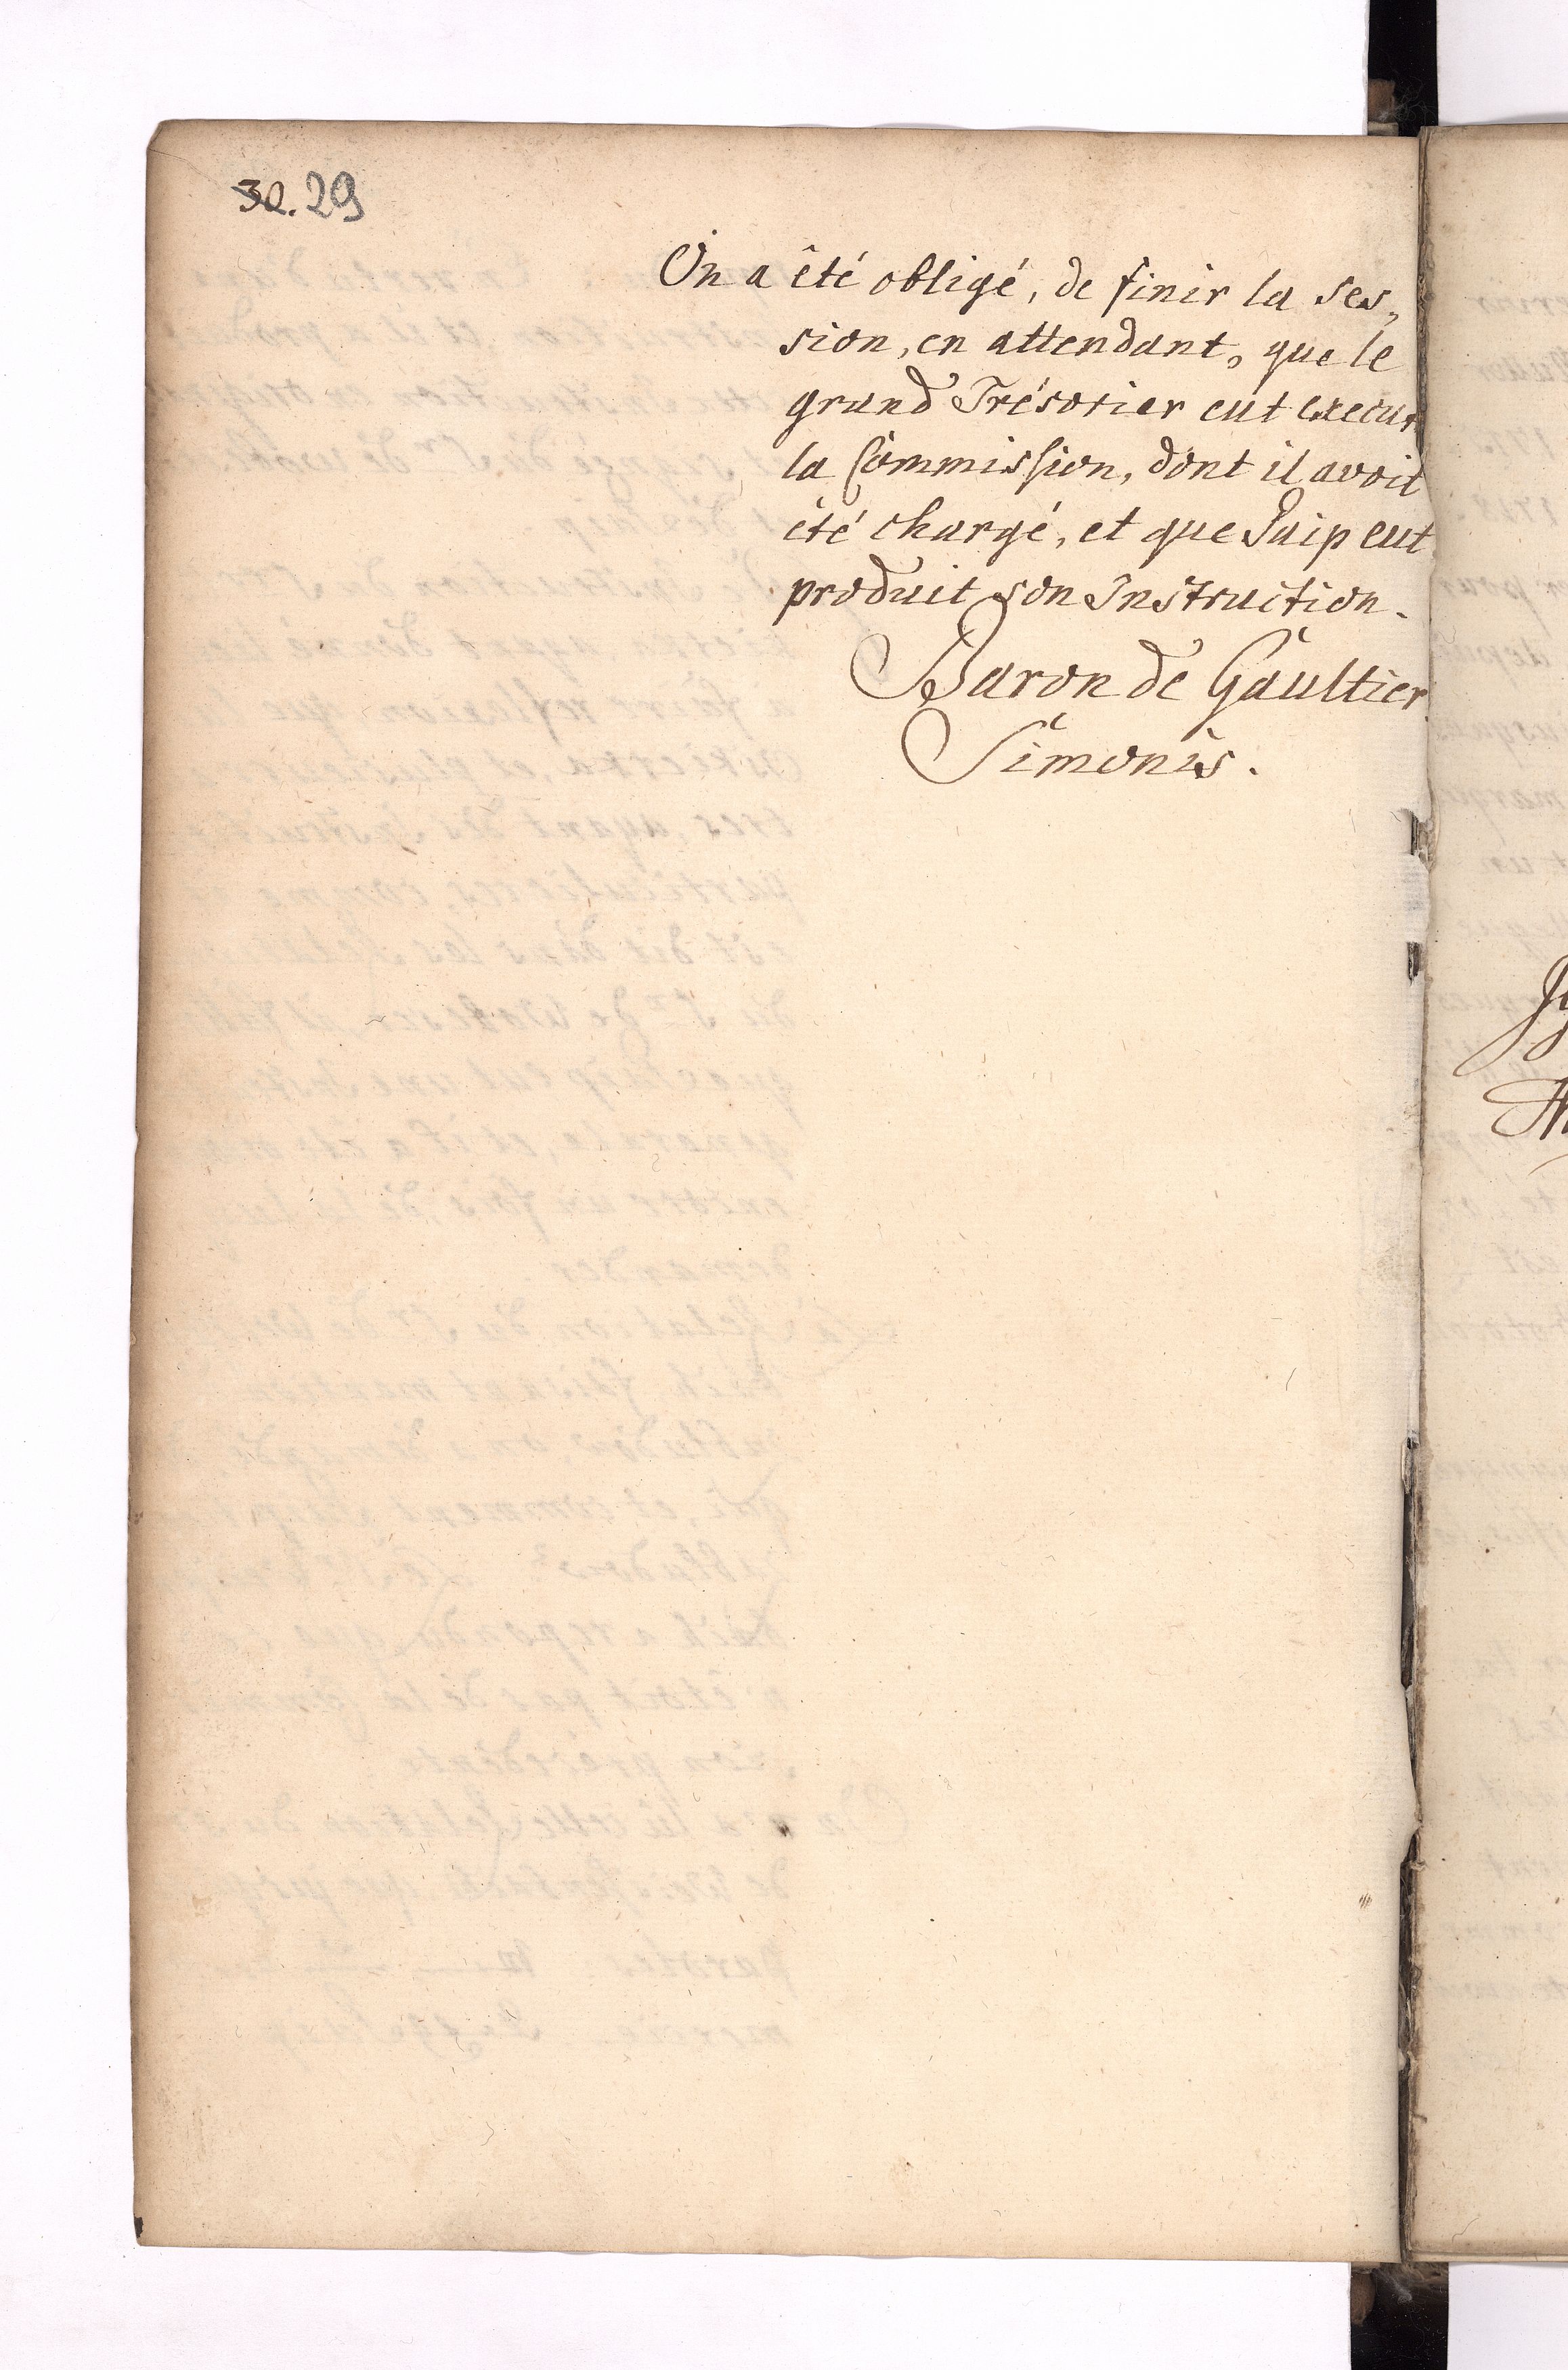 30. 29
On a êté obligé, de finir la ses„
sion, en attendant, que le
grand Trésorier eut execut
la Commission, dont il avoit
été chargé, et que Saip eut
produit son Instruction.
Baron de Gaultier
Simonis.